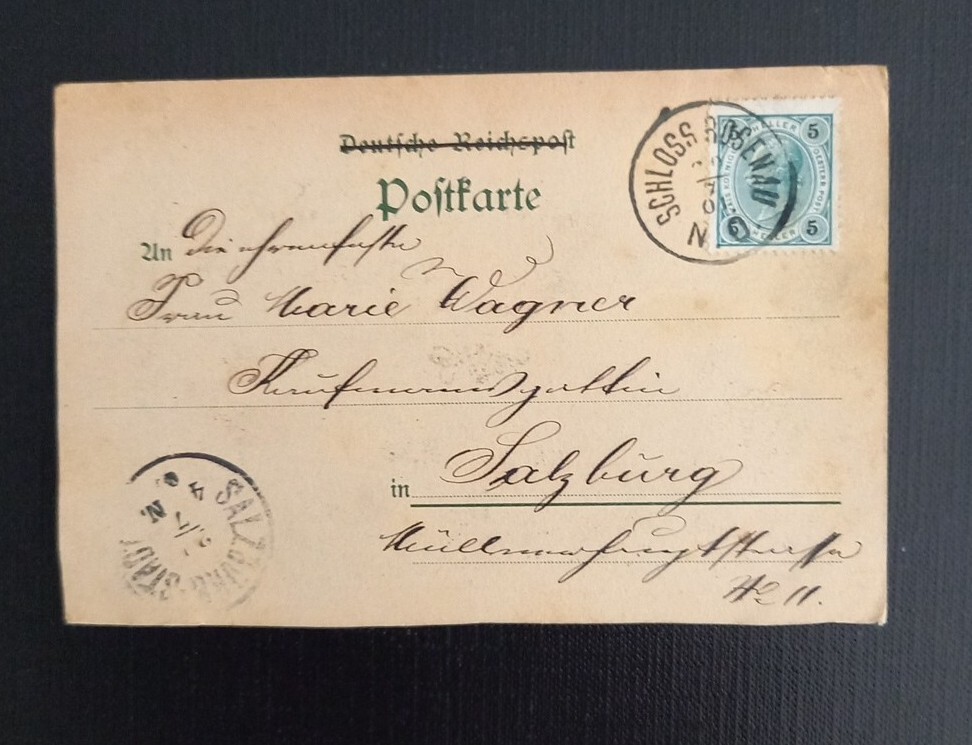 Deutsche Reichspost
Postkarte
SCHLOSS ROSENAU
N. Ö.
HELLER
5 5
OESTERR. POST
5 5
HELLER
An die ehrenfeste
Frau Marie Wagner
Kaufmannsgattin
in Salzburg
Müllnerhauptstrasse
No 11.
SALZBURG STADT
4 N.